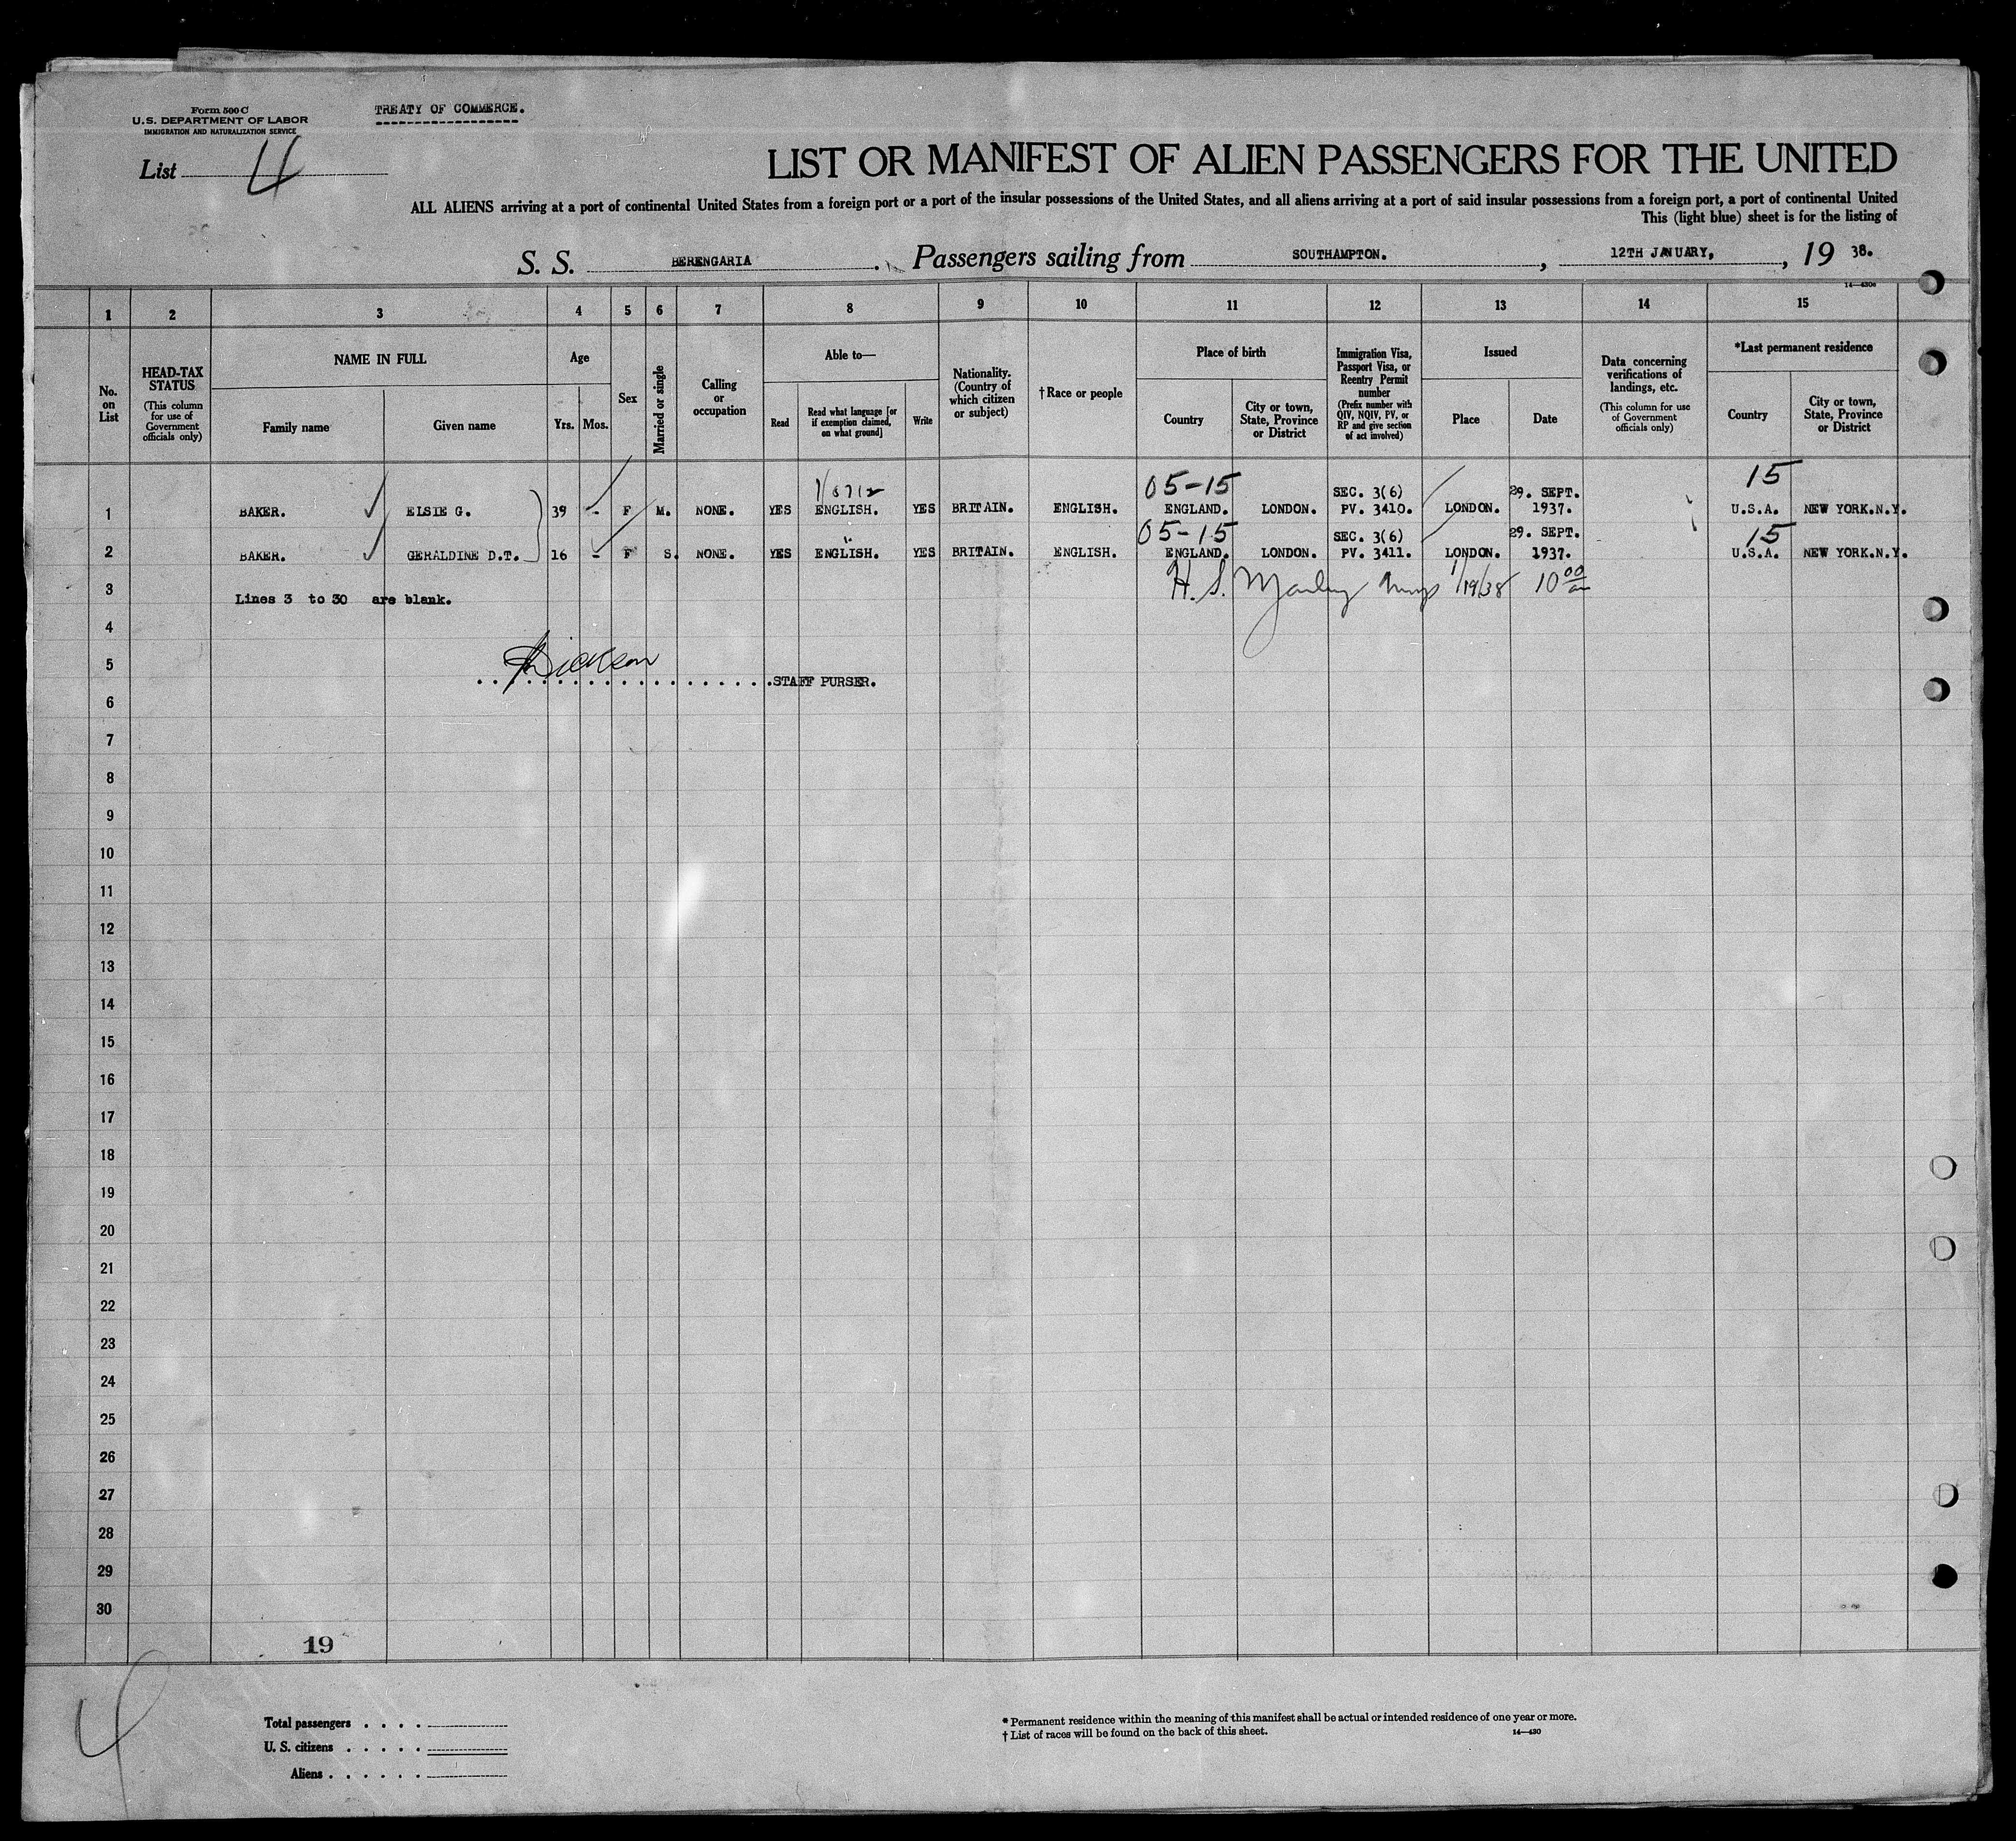 Form 500 C
U.S. DEPARTMENT OF LABOR
IMMIGRATION AND NATURALIZATION SERVICE
TREATY OF COMMERCE.
List 4
LIST OR MANIFEST OF ALIEN PASSENGERS FOR THE UNITED
ALL ALIENS arriving at a port of continental United States from a foreign port or a port of the insular possessions of the United States, and all aliens arriving at a port of said insular possessions from a foreign port, a port of continental United
This (light blue) sheet is for the listing of
S. S. BERENGARIA. Passengers sailing from SOUTHAMPTON., 12TH JANUARY, , 19 38.
1 2 3 4 5 6 7 8 9 10 11 12 13 14 15
No. on List
HEAD-TAX STATUS
(This column for use of Government officials only)
NAME IN FULL
Family name
Given name
Age
Yrs. Mos.
Sex
Married or single
Calling or occupation
Able to—
Read
Read what language [or if exemption claimed, on what ground]
Write
Nationality. (Country of which citizen or subject)
†Race or people
Place of birth
Country
City or town, State, Province or District
Immigration Visa, Passport Visa, or Reentry Permit number
(Prefix number with QIV, NQIV, PV, or RP and give section of act involved)
Issued
Place
Date
Data concerning verifications of landings, etc.
(This column for use of Government officials only)
*Last permanent residence
Country
City or town, State, Province or District
05-15 SEC. 3(6) 29. SEPT. 15
1 BAKER. ELSIE G. 39 - F M. NONE. YES ENGLISH. YES BRITAIN. ENGLISH. ENGLAND. LONDON. PV. 3410. LONDON. 1937. U.S.A. NEW YORK.N.Y.
05-15 SEC. 3(6) 29. SEPT. 15
2 BAKER. GERALDINE D.T. 16 - F S. NONE. YES ENGLISH. YES BRITAIN. ENGLISH. ENGLAND. LONDON. PV. 3411. LONDON. 1937. U.S.A. NEW YORK.N.Y.
3 Lines 3 to 30 are blank. H. S. 1/19/38 10 00
4
5 Dickson
STAFF PURSER.
6
7
8
9
10
11
12
13
14
15
16
17
18
19
20
21
22
23
24
25
26
27
28
29
30
19
4
Total passengers . . . .
U. S. citizens . . . . .
Aliens . . . . . .
* Permanent residence within the meaning of this manifest shall be actual or intended residence of one year or more.
† List of races will be found on the back of this sheet. 14—430